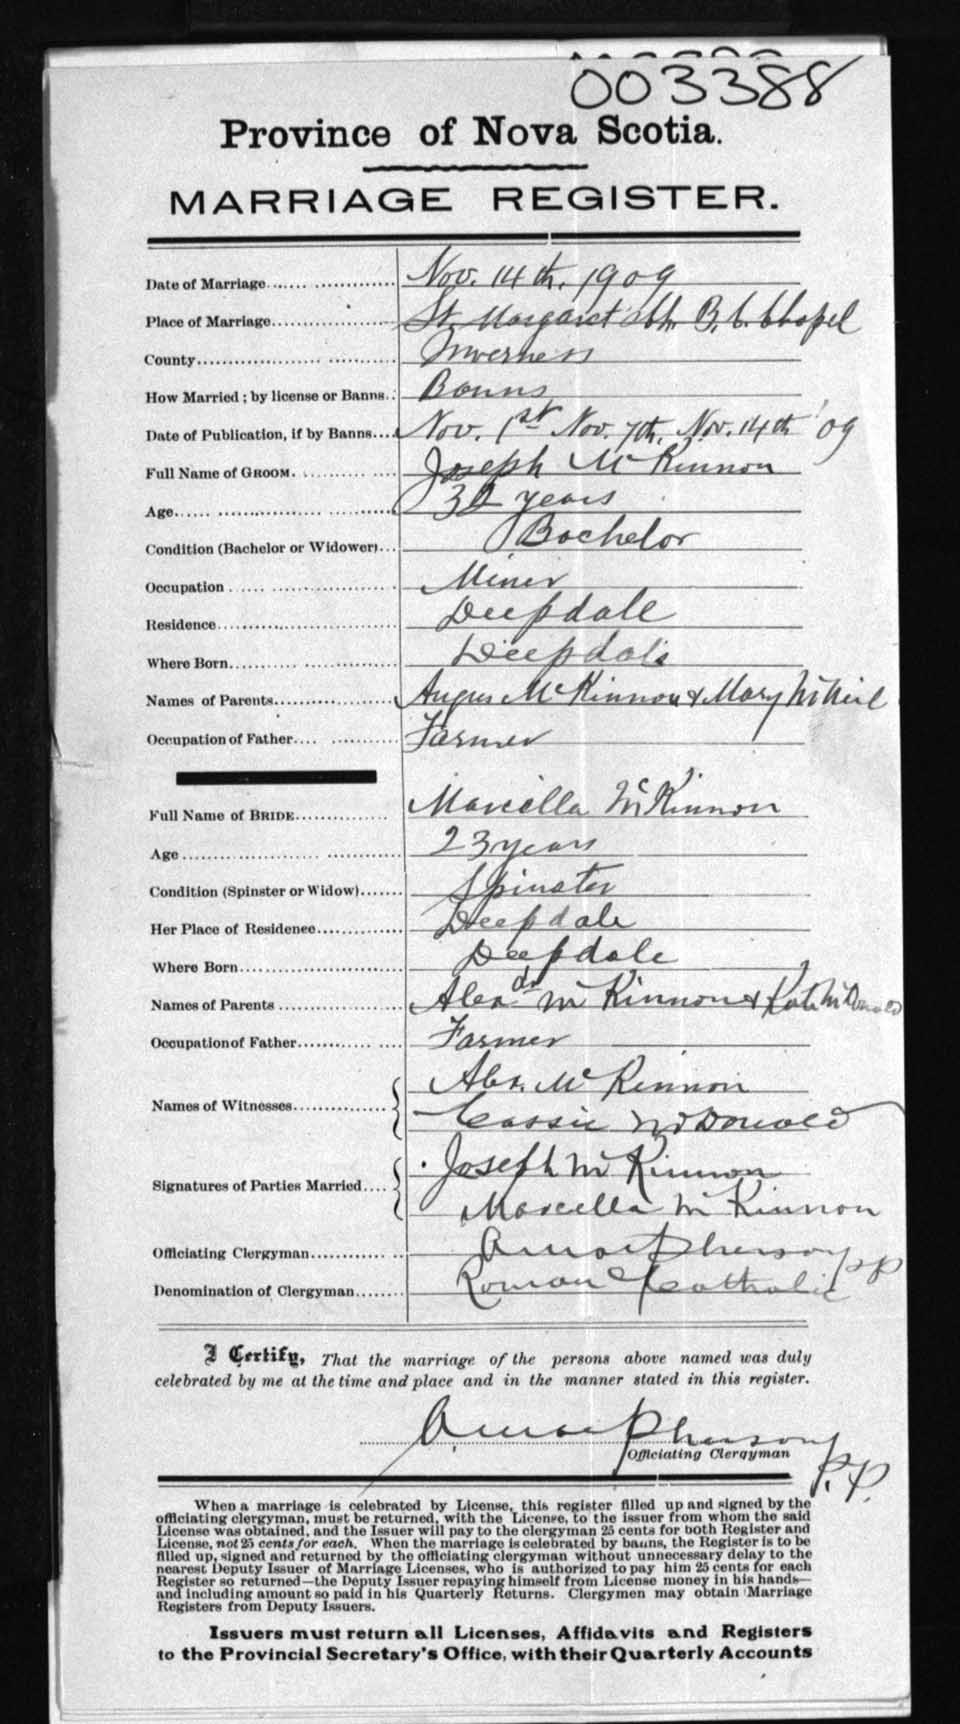 003388
Province of Nova Scotia.
MARRIAGE REGISTER.
Date of Marriage Nov. 14th. 1909
Place of Marriage St. Margaret Ch. B. C. Chapel
County Inverness
How Married ; by license or Banns Banns
Date of Publication, if by Banns Nov. 1st Nov. 7th, Nov. 14th '09
Full Name of GROOM Joseph McKinnon
Age 32 years
Condition (Bachelor or Widower) Bachelor
Occupation Miner
Residence Deepdale
Where Born Deepdale
Names of Parents Angus McKinnon & Mary McNeil
Occupation of Father Farmer
Full Name of BRIDE Marcella McKinnon
Age 23 years
Condition (Spinster or Widow) Spinster
Her Place of Residence Deepdale
Where Born Deepdale
Names of Parents Alexdr McKinnon & Kate McDonald
Occupation of Father Farmer
Names of Witnesses Alex. McKinnon
Cassie McDonald
Signatures of Parties Married Joseph McKinnon
Marcella McKinnon
Officiating Clergyman A MacPherson PP
Denomination of Clergyman Roman Catholic
I Certify, That the marriage of the persons above named was duly
celebrated by me at the time and place and in the manner stated in this register.
A MacPherson
Officiating Clergyman
P.P.
When a marriage is celebrated by License, this register filled up and signed by the
officiating clergyman, must be returned, with the License, to the issuer from whom the said
License was obtained, and the Issuer will pay to the clergyman 25 cents for both Register and
License, not 25 cents for each. When the marriage is celebrated by banns, the Register is to be
filled up, signed and returned by the officiating clergyman without unnecessary delay to the
nearest Deputy Issuer of Marriage Licenses, who is authorized to pay him 25 cents for each
Register so returned—the Deputy Issuer repaying himself from License money in his hands—
and including amount so paid in his Quarterly Returns. Clergymen may obtain Marriage
Registers from Deputy Issuers.
Issuers must return all Licenses, Affidavits and Registers
to the Provincial Secretary's Office, with their Quarterly Accounts